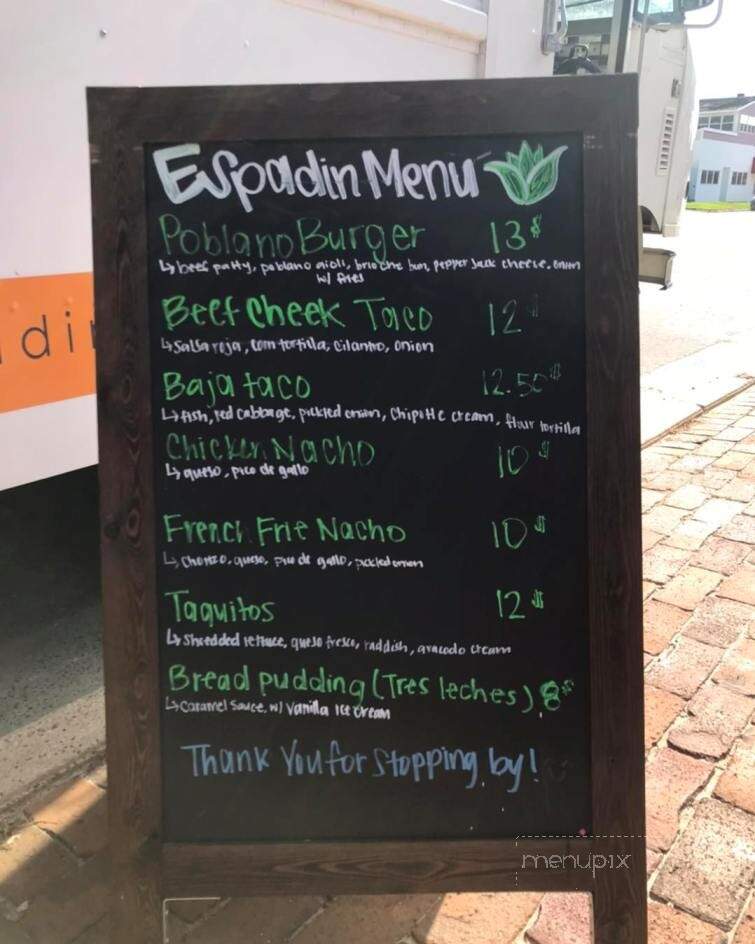 Espadin Menu
Poblano Burger 13$
↳ beef patty, poblano aioli, brioche bun, pepper Jack cheese, onion
w/ fries
Beef Cheek Taco 12$
↳ Salsa roja, corn tortilla, cilantro, onion
Baja taco 12.50$
↳ fish, red cabbage, pickled onion, Chipotle cream, flour tortilla
Chicken Nacho 10$
↳ queso, pico de gallo
French Frie Nacho 10$
↳ Chorizo, queso, pico de gallo, pickled onion
Taquitos 12$
↳ Shredded lettuce, queso fresco, raddish, avacodo cream
Bread pudding (Tres leches) 8$
↳ Caramel Sauce, w/ Vanilla Ice Cream
Thank You for Stopping by!
menupix